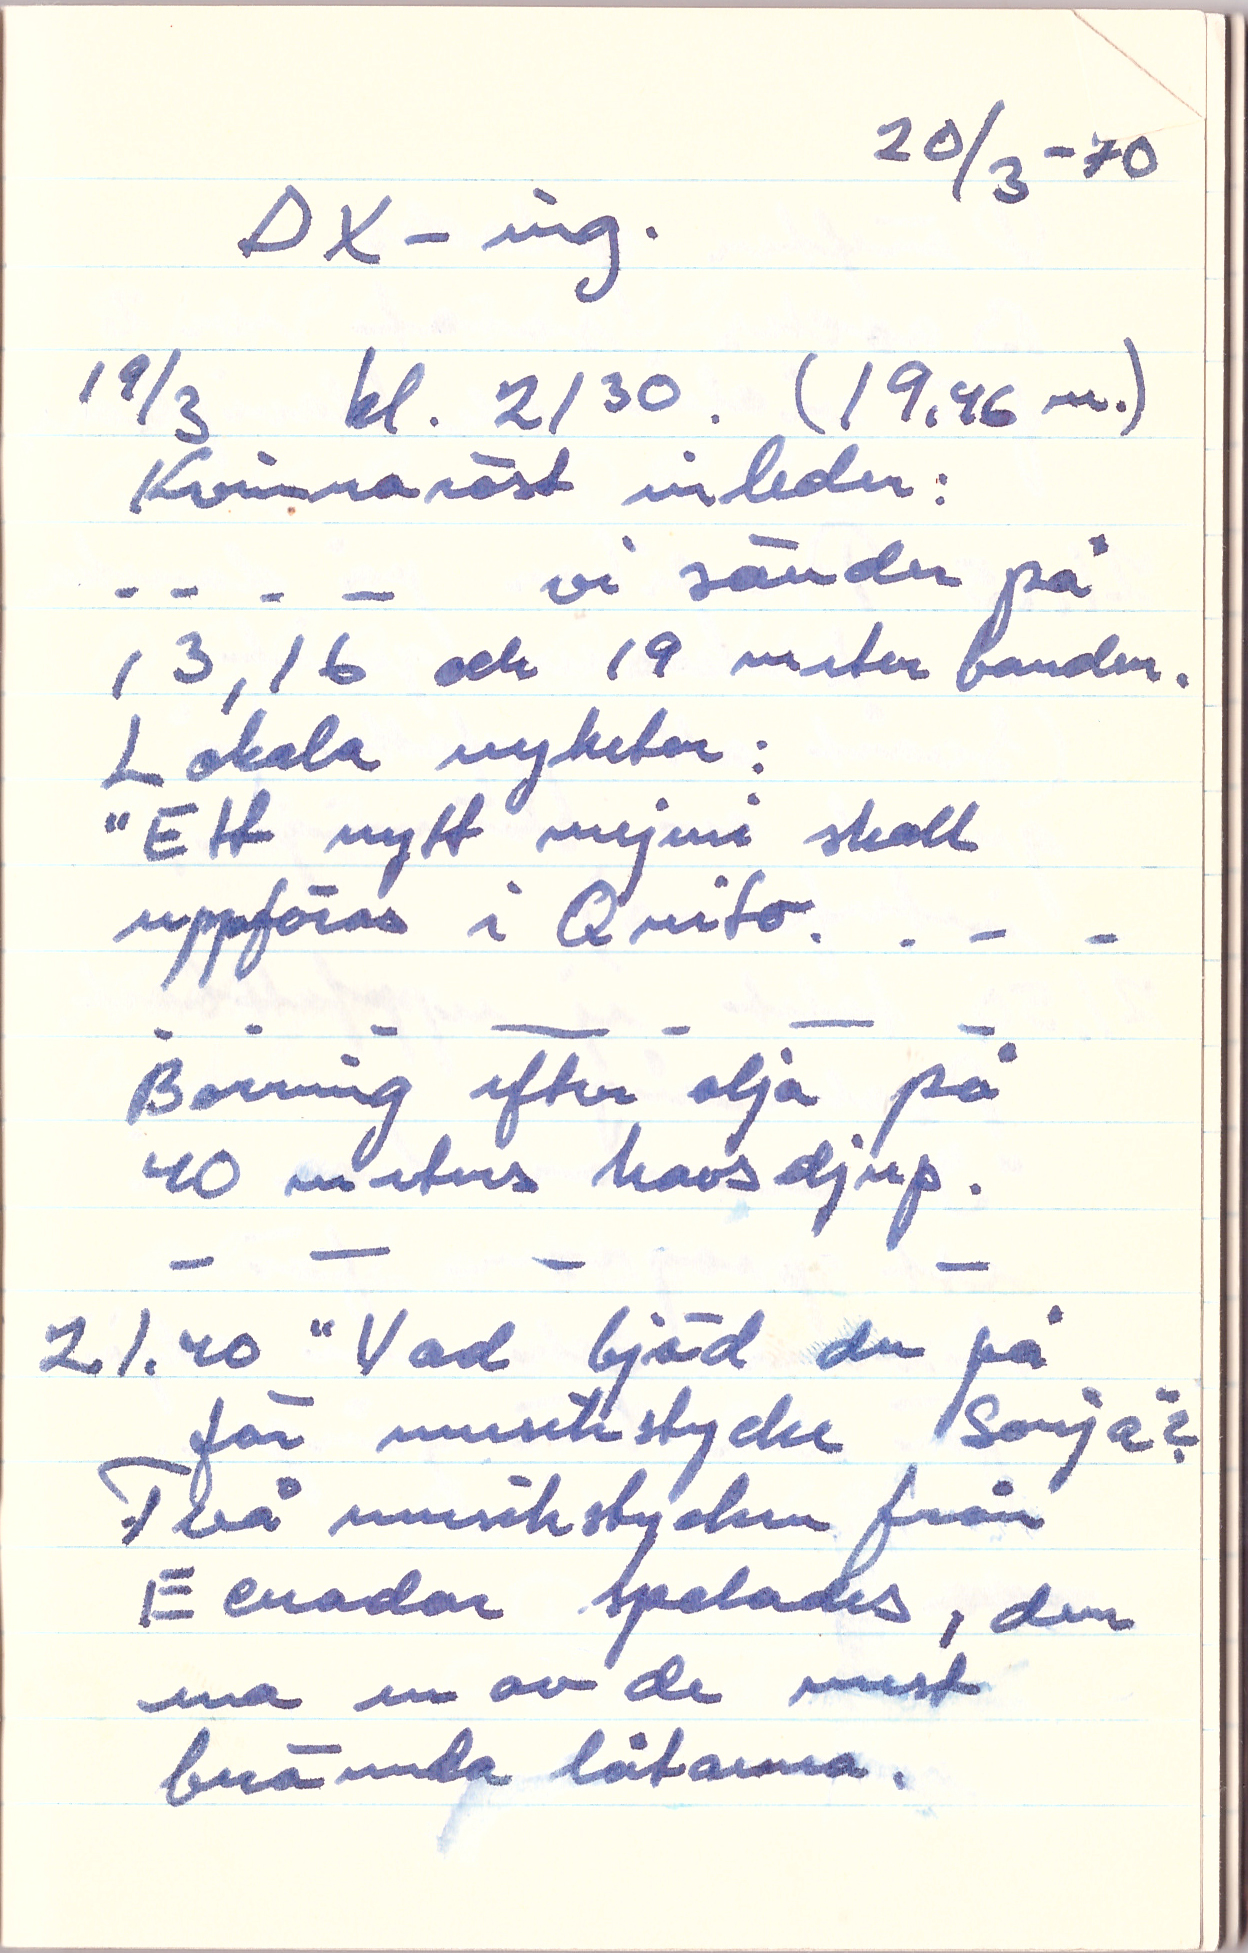 20/3-70
DX-ing.
19/3 kl. 2130. (19,46 m.)
Kvinnaröst inleder:
- - - - vi sänder på
13, 16 och 19 meter banden.
Lokala nyheter:
"Ett nytt mejeri skall
uppföras i Quito. . - -
- - - - - - -
Borrning efter olja på
40 meters havsdjup.
- - - -
21.40 "Vad bjöd du på
för musikstycke Sonja"?
Två musikstycken från
Ecuador spelades, den
ena en av de mest
berömda låtarna.